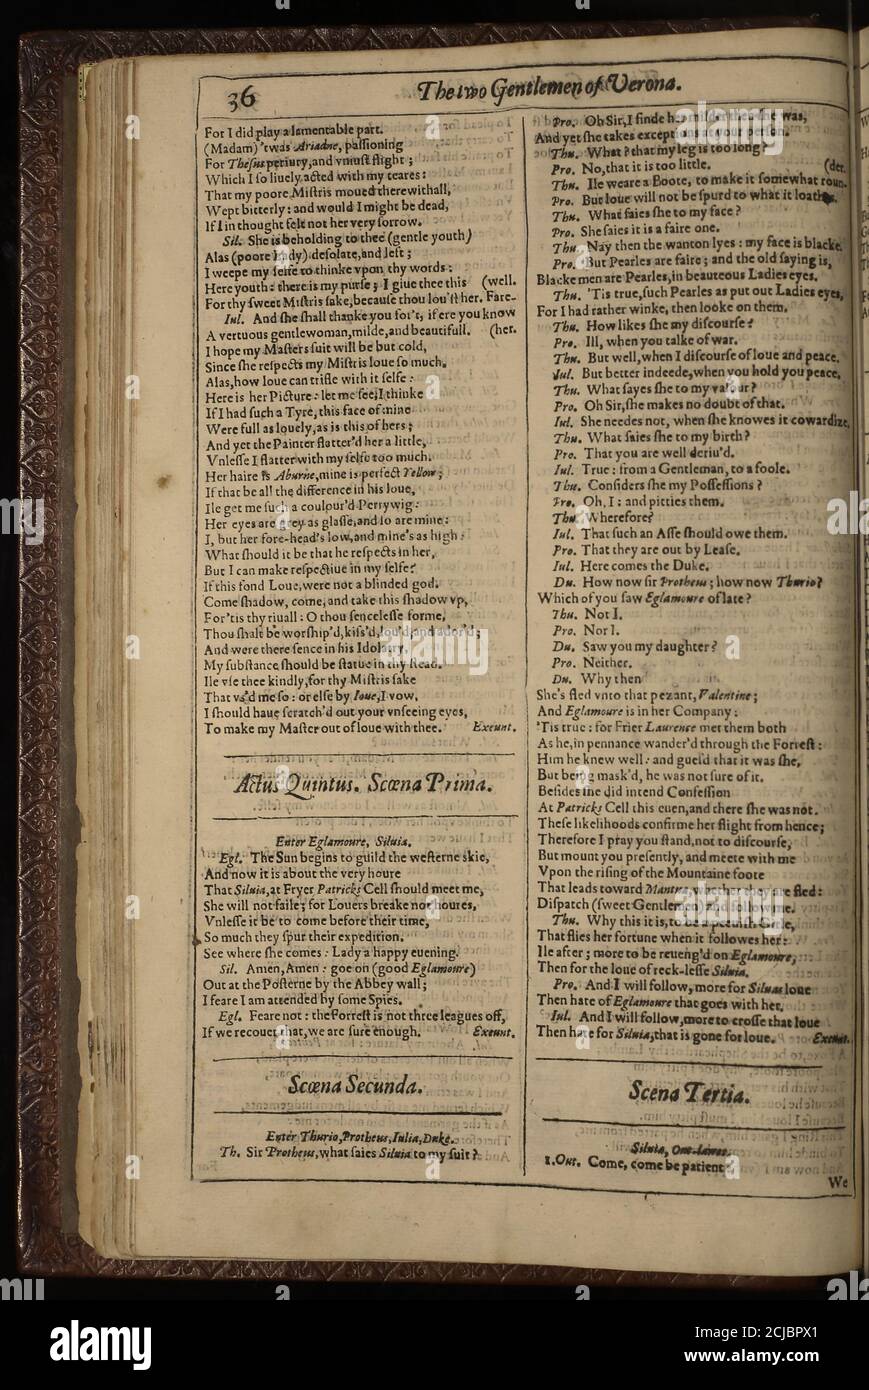 36
The two Gentlemen of Verona.
For I did play a lamentable part.
(Madam) 'twas Ariadne, passioning
For Thesus periury, and vniust flight;
Which I so liuely acted with my teares:
That my poore Mistris moued therewithall,
Wept bitterly: and would I might be dead,
If I in thought felt not her very sorrow.
Sil. She is beholding to thee (gentle youth)
Alas (poore Lady) desolate, and left;
I weepe my selfe to thinke vpon thy words:
Here youth: there is my purse; I giue thee this (well.
For thy sweet Mistris sake, because thou lou'st her. Fare-
Iul. And she shall thanke you for't, if ere you know
A vertuous gentlewoman, milde, and beautifull. (her.
I hope my Masters suit will be but cold,
Since she respects my Mistris loue so much.
Alas, how loue can trifle with it selfe:
Here is her Picture: let me see, I thinke
If I had such a Tyre, this face of mine
Were full as louely, as is this of hers;
And yet the Painter flatter'd her a little,
Vnlesse I flatter with my selfe too much.
Her haire is Aburne, mine is perfect Yellow;
If that be all the difference in his loue,
Ile get me such a coulour'd Perrywig:
Her eyes are grey as glasse, and so are mine:
I, but her fore-head's low, and mine's as high:
What should it be that he respects in her,
But I can make respectiue in my selfe?
If this fond Loue, were not a blinded god.
Come shadow, come, and take this shadow vp,
For 'tis thy riuall: O thou sencelesse forme,
Thou shalt be worship'd, kiss'd, lou'd, and ador'd;
And were there sence in his Idolatry,
My substance should be statue in thy stead.
Ile vse thee kindly, for thy Mistris sake
That vs'd me so: or else by Ioue, I vow,
I should haue scratch'd out your vnseeing eyes,
To make my Master out of loue with thee. Exeunt.
Actus Quintus. Scœna Prima.
Enter Eglamoure, Siluia.
Egl. The Sun begins to guild the westerne skie,
And now it is about the very houre
That Siluia, at Fryer Patricks Cell should meet me,
She will not faile; for Louers breake not houres,
Vnlesse it be to come before their time,
So much they spur their expedition.
See where she comes: Lady a happy euening.
Sil. Amen, Amen: goe on (good Eglamoure)
Out at the Posterne by the Abbey wall;
I feare I am attended by some Spies.
Egl. Feare not: the Forrest is not three leagues off,
If we recouer that, we are sure enough. Exeunt.
Scœna Secunda.
Enter Thurio, Protheus, Iulia, Duke.
Th. Sir Protheus, what saies Siluia to my suit?
Pro. Oh Sir, I finde her milder then she was,
And yet she takes exceptions at your person.
Thu. What? that my leg is too long?
Pro. No, that it is too little. (der.
Thu. Ile weare a Boote, to make it somewhat roun-
Pro. But loue will not be spurd to what it loathes.
Thu. What saies she to my face?
Pro. She saies it is a faire one.
Thu. Nay then the wanton lyes: my face is blacke.
Pro. But Pearles are faire; and the old saying is,
Blacke men are Pearles, in beauteous Ladies eyes.
Thu. 'Tis true, such Pearles as put out Ladies eyes,
For I had rather winke, then looke on them.
Thu. How likes she my discourse?
Pro. Ill, when you talke of war.
Thu. But well, when I discourse of loue and peace.
Iul. But better indeede, when you hold you peace.
Thu. What sayes she to my valour?
Pro. Oh Sir, she makes no doubt of that.
Iul. She needes not, when she knowes it cowardize.
Thu. What saies she to my birth?
Pro. That you are well deriu'd.
Iul. True: from a Gentleman, to a foole.
Thu. Considers she my Possessions?
Pro. Oh, I: and pitties them.
Thu. Wherefore?
Iul. That such an Asse should owe them.
Pro. That they are out by Lease.
Iul. Here comes the Duke.
Du. How now sir Protheus; how now Thurio?
Which of you saw Eglamoure of late?
Thu. Not I.
Pro. Nor I.
Du. Saw you my daughter?
Pro. Neither.
Du. Why then
She's fled vnto that pezant, Valentine;
And Eglamoure is in her Company:
'Tis true: for Frier Laurence met them both
As he, in pennance wander'd through the Forrest:
Him he knew well: and guesd that it was she,
But being mask'd, he was not sure of it.
Besides she did intend Confession
At Patricks Cell this euen, and there she was not.
These likelihoods confirme her flight from hence;
Therefore I pray you stand, not to discourse,
But mount you presently, and meete with me
Vpon the rising of the Mountaine foote
That leads toward Mantua, whether they are fled:
Dispatch (sweet Gentlemen) and follow me.
Thu. Why this it is, to be a peeuish Girle,
That flies her fortune when it followes her:
Ile after; more to be reueng'd on Eglamoure,
Then for the loue of reck-lesse Siluia.
Pro. And I will follow, more for Siluas loue
Then hate of Eglamoure that goes with her.
Iul. And I will follow, more to crosse that loue
Then hate for Siluia, that is gone for loue. Exeunt.
Scena Tertia.
Siluia, Out-lawes.
1.Out. Come, come be patient
We
alamy
Image ID: 2CJBPX1
www.alamy.com